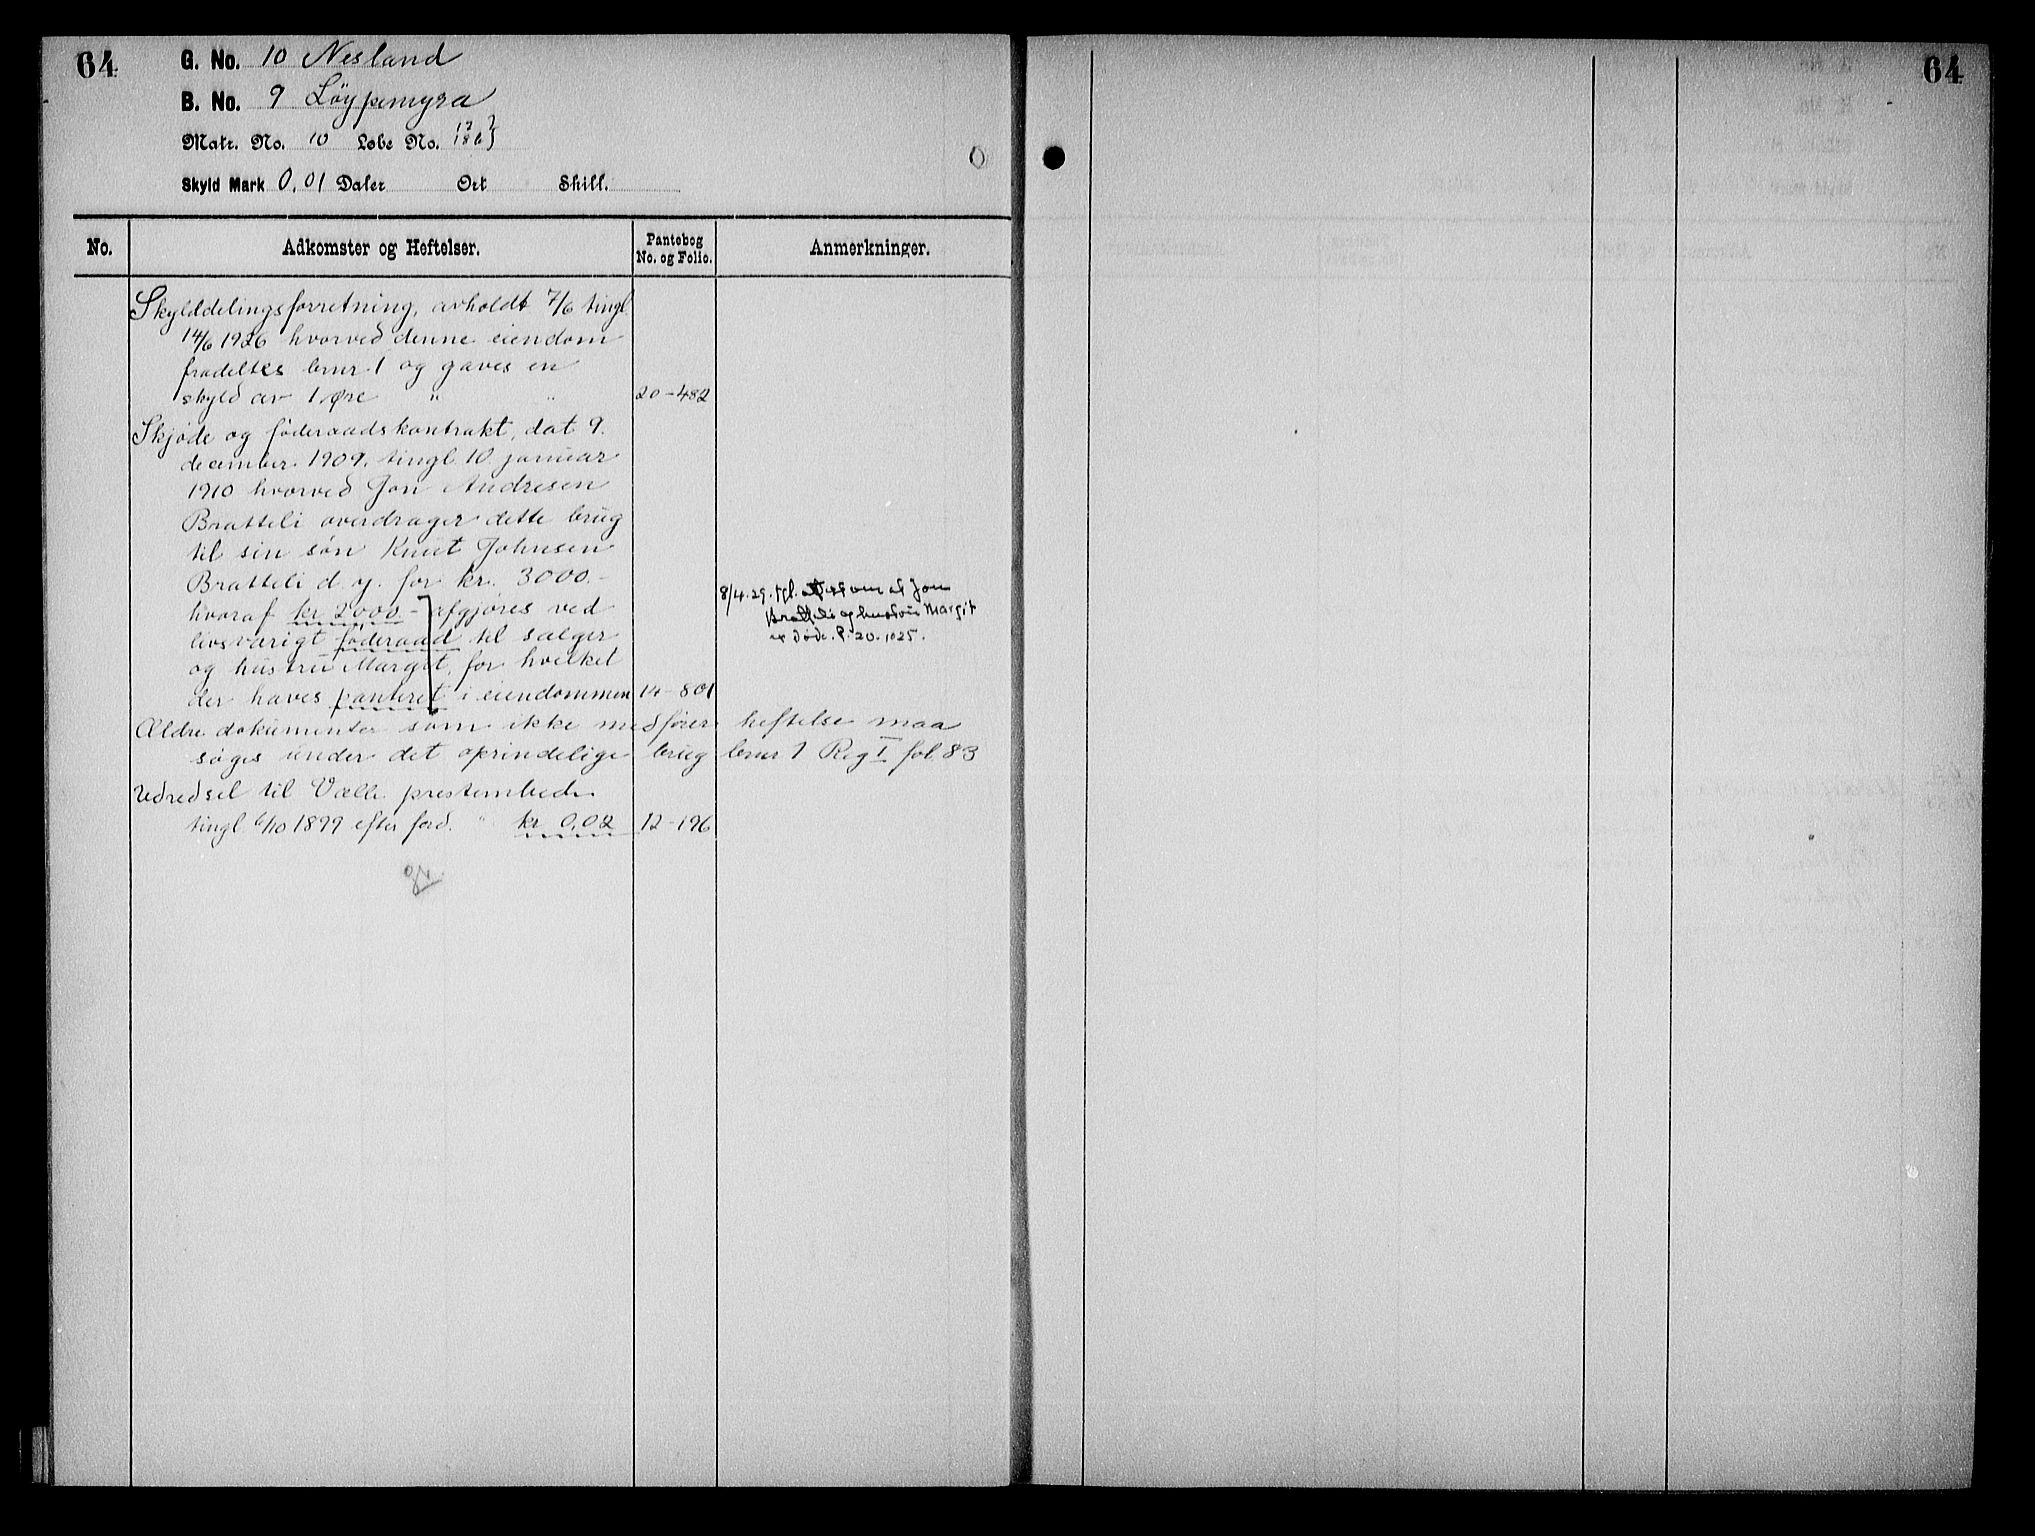 64
G. No. 10 Nesland
B. No. 9 Löypemyra
Matr. No. 10 Løbe No.
Skyld Mark 0,01 Daler Ort Skill.
No. Adkomster og Heftelser. Pantebog No. og Folio. Anmerkninger.
Skylddelingsforretning, avholdt 7/6 tingl
14/6 1926 hvorved denne eiendom
fradeltes bnr 1 og gaves en
skyld av 1 øre " " 20-482
Skjøde og föderaadskontrakt, dat 9.
december 1909, tingl. 10 januar
1910 hvorved Jon Andresen
Bratteli overdrager dette brug
til sin sön Knut Johnsen
Bratteli d. y. for kr. 3000.-
hvoraf kr 2000.- afgjøres ved
livsvarigt föderaad til sælger
og hustru Margit, for hvilket
der haves panteret i eiendommen 14-801
8/4.29. tgl. attest om at Jon
Bratteli og hustru Margit
er døde. P. 20. 1025.
Ældre dokumenter som ikke medfører heftelse maa
søges under det oprindelige brug bnr 1 Reg I fol. 83
Udredsel til Valle prestembede
tingl. 6/10 1899 efter ford. " kr 0,02 12-196
64